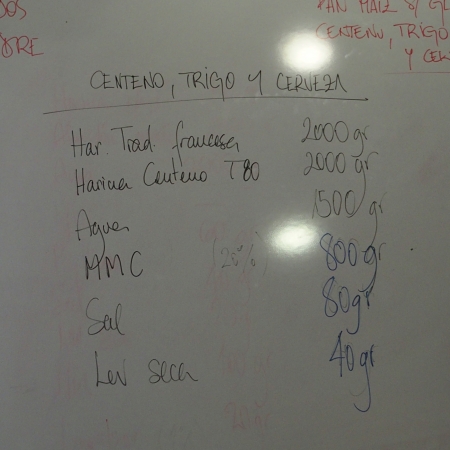 DOS
BRE
PAN MAIZ S/ GL
CENTENO, TRIGO
Y CER
CENTENO, TRIGO Y CERVEZA
Har. Trad. francesa 2000gr
Harina Centeno T80 2000gr
Agua 1500gr
MMC (20%) 800gr
Sal 80gr
Lev seca 40gr